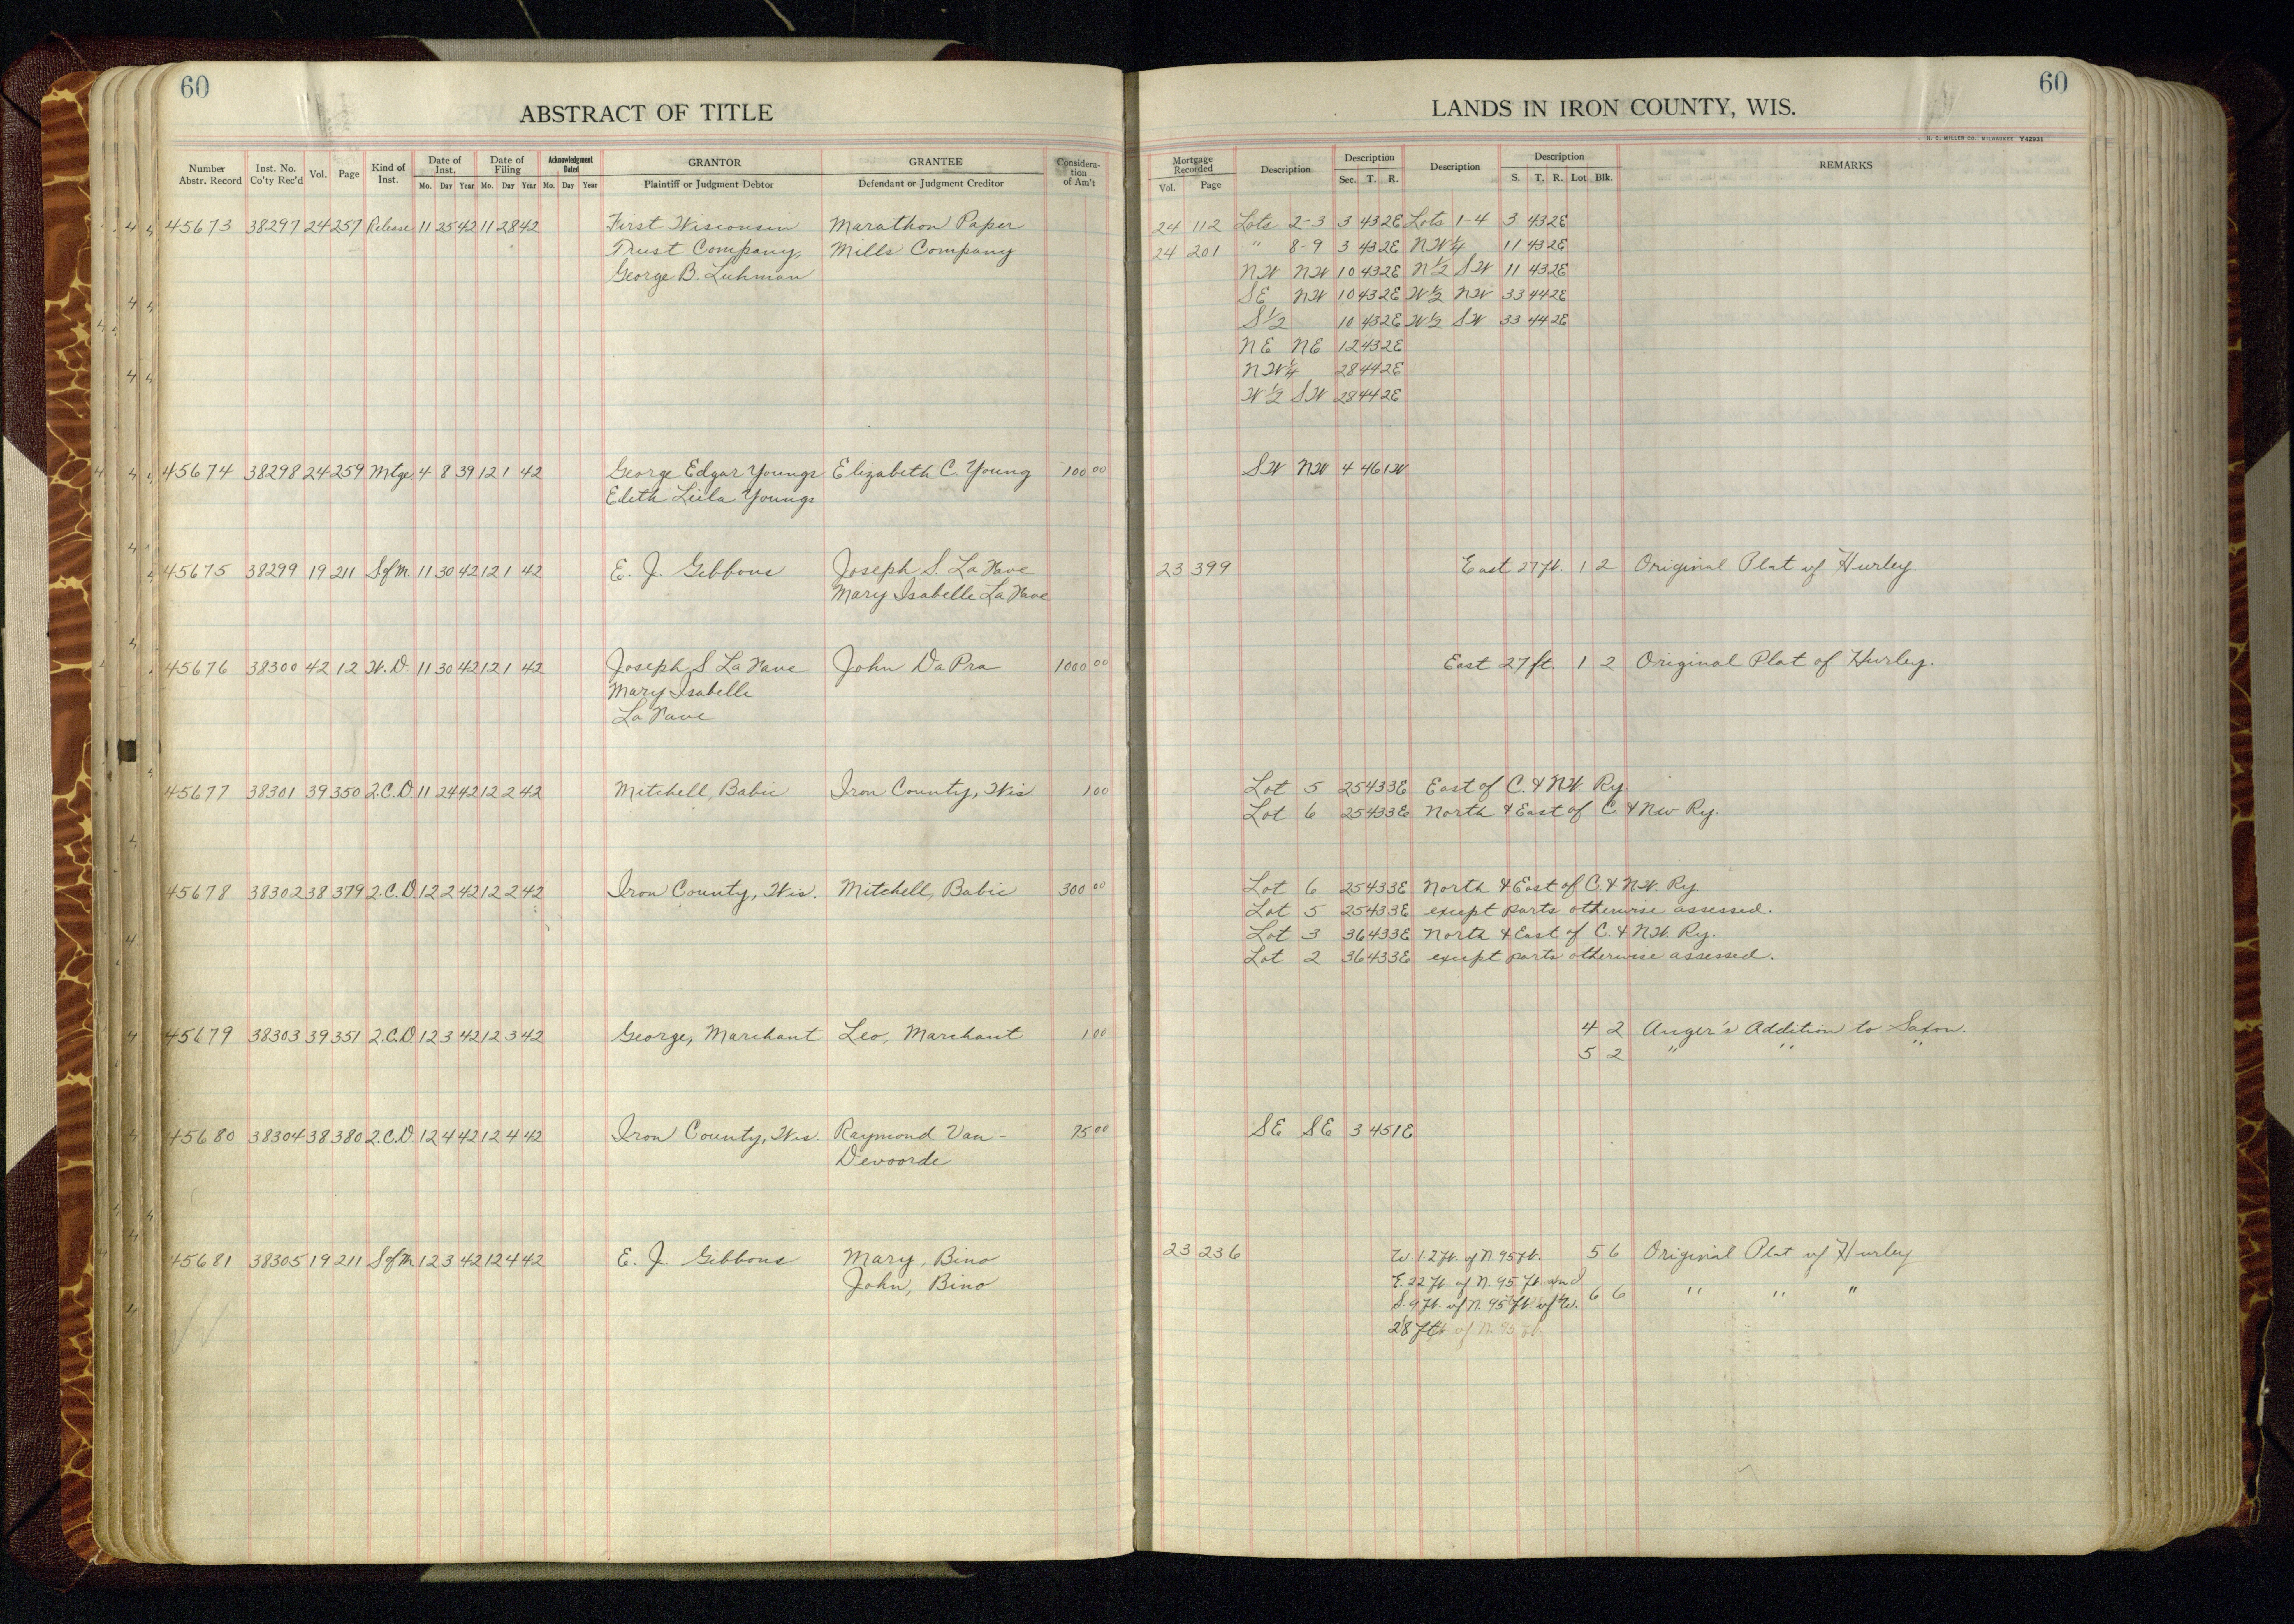 60
ABSTRACT OF TITLE
Number Abstr. Record | Inst. No. Co'ty Rec'd | Vol. | Page | Kind of Inst. | Date of Inst. Mo. Day Year | Date of Filing Mo. Day Year | Acknowledgment Dated Mo. Day Year | GRANTOR Plaintiff or Judgment Debtor | GRANTEE Defendant or Judgment Creditor | Considera-tion of Am't
45673 38297 24 257 Release 11 25 42 11 28 42 First Wisconsin Marathon Paper
Trust Company, Mills Company
George B. Luhman
45674 38298 24 259 Mtge 4 8 39 12 1 42 George Edgar Youngs Elizabeth C. Young 100 00
Edith Leila Youngs
45675 38299 19 211 S of M. 11 30 42 12 1 42 E. J. Gibbons Joseph S. La Nave
Mary Isabelle La Nave
45676 38300 42 12 W.D. 11 30 42 12 1 42 Joseph S La Nave John DaPra 1000 00
Mary Isabelle
La Nave
45677 38301 39 350 Q.C.D. 11 24 42 12 2 42 Mitchell, Babic Iron County, Wis. 1 00
45678 38302 38 379 Q.C.D. 12 2 42 12 2 42 Iron County, Wis. Mitchell, Babic 300 00
45679 38303 39 351 Q.C.D. 12 3 42 12 3 42 George, Marchant Leo, Marchant 1 00
45680 38304 38 380 Q.C.D. 12 4 42 12 4 42 Iron County, Wis. Raymond Van- 75 00
Devoorde
45681 38305 19 211 S of M 12 3 42 12 4 42 E. J. Gibbons Mary, Bino
John, Bino
60
LANDS IN IRON COUNTY, WIS.
H. C. MILLER CO., MILWAUKEE Y42931
Mortgage Recorded Vol. Page | Description | Description Sec. T. R. | Description | Description S. T. R. Lot Blk. | REMARKS
24 112 Lots 2-3 3 43 2E Lots 1-4 3 43 2E
24 201 " 8-9 3 43 2E NW¼ 11 43 2E
NW NW 10 43 2E N½ SW 11 43 2E
SE NW 10 43 2E W½ NW 33 44 2E
S½ 10 43 2E W½ SW 33 44 2E
NE NE 12 43 2E
NW¼ 28 44 2E
W½ SW 28 44 2E
SW NW 4 46 1W
23 399 East 27 ft. 1 2 Original Plat of Hurley.
East 27 ft. 1 2 Original Plat of Hurley.
Lot 5 25 43 3E East of C. & N.W. Ry
Lot 6 25 43 3E North & East of C. & NW Ry.
Lot 6 25 43 3E North & East of C. & N.W. Ry.
Lot 5 25 43 3E except parts otherwise assessed.
Lot 3 36 43 3E North & East of C. & N.W. Ry.
Lot 2 36 43 3E except parts otherwise assessed.
4 2 Anger's Addition to Saxon.
5 2 " " "
SE SE 3 45 1E
23 236 W. 1.2 ft. of N. 95 ft. 5 6 Original Plat of Hurley
E. 22 ft. of N. 95 ft. and
S. 9 ft. of N. 95 ft. of W. 6 6 " " "
28 ft. of N. 95 ft.